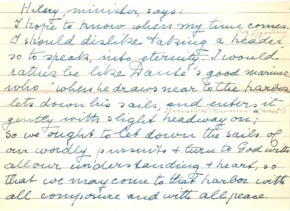 Hilary, minister, says:
I hope to know when my time comes.
I should dislike taking a header,
so to speak, into eternity. I would
rather be like Dante's good mariner
who when he draws near to the harbor
lets down his sails, and enters it
gently with slight headway on;
So we ought to let down the sails of
our wordly pursuits & turn to God with
all our understanding & heart, so
that we may come to that harbor with
all composure and with all peace.